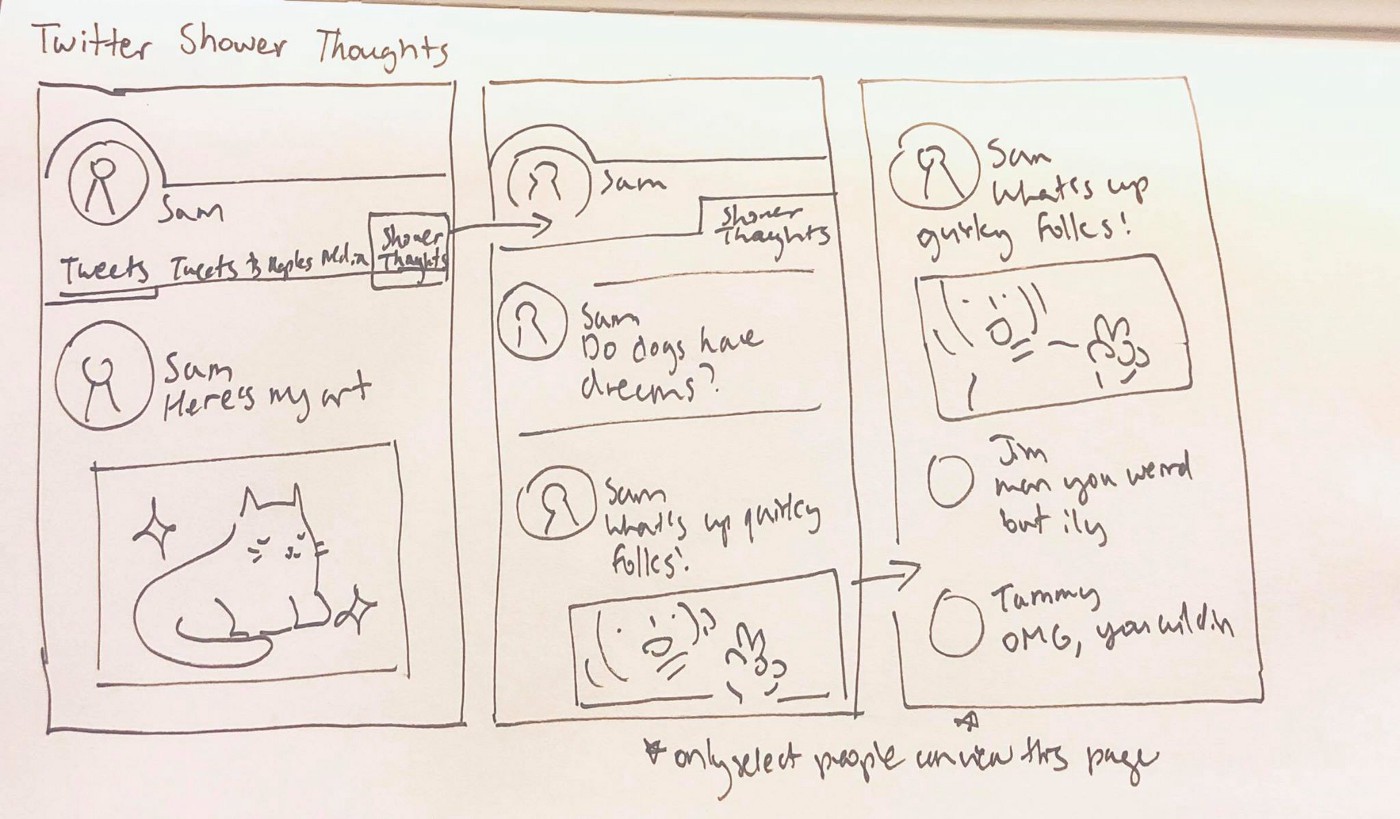 Twitter Shower Thoughts
Sam
Tweets Tweets & Replies Media
Shower
Thoughts
Sam
Here's my art
Sam
Shower
Thoughts
Sam
Do dogs have
dreams?
Sam
What's up quirky
folks!
Sam
What's up
quirky folks!
Jim
man you weird
but ily
Tammy
OMG, you wildin
* only select people can view this page